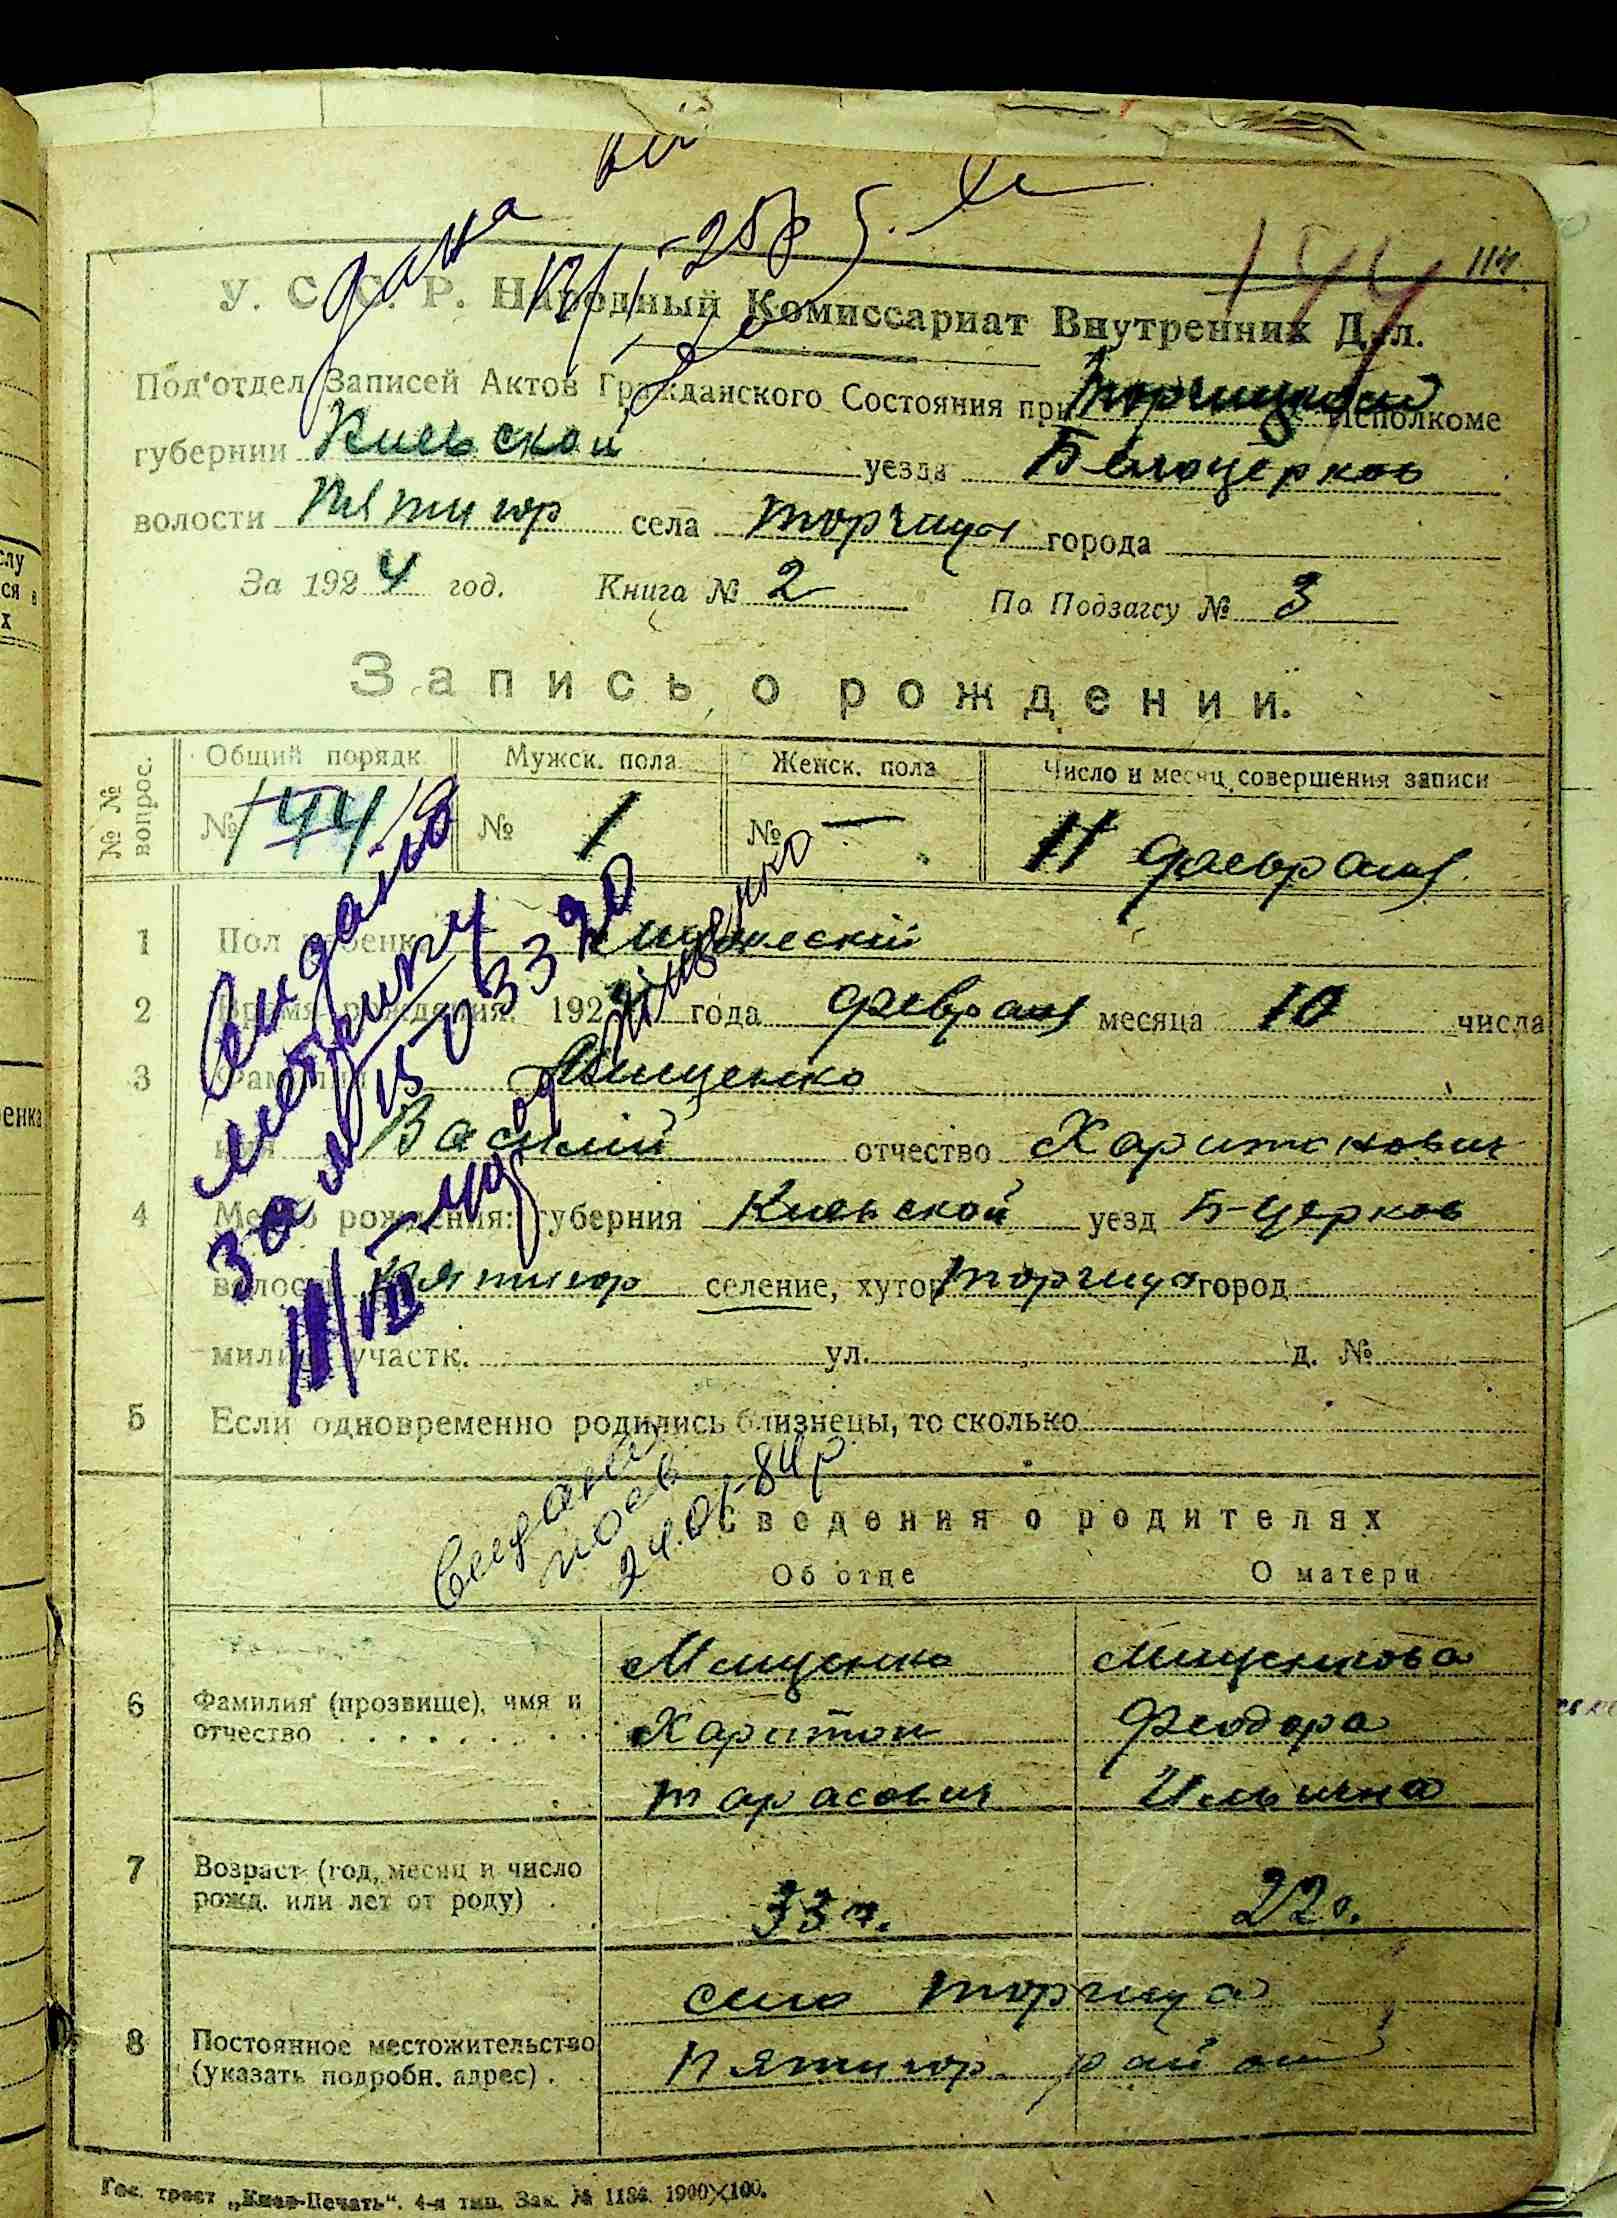 дана
114.
144
У. С. С. Р. Народный Комиссариат Внутренних Дел.
Под'отдел Записей Актов Гражданского Состояния при Торчицком Исполкоме
губернии Киевской уезда Белоцерков
волости Пятигор села Торчица города
За 1924 год. Книга № 2 По Подзагсу № 3
Запись о рождении.
№ № вопрос. Общий порядк Мужск. пола Женск. пола Число и месяц совершения записи
№ 144 № 1 № — 11 февраля
1 Пол ребенка мужескій
2 Время рождения: 1924 года февраля месяца 10 числа
3 Фамилия Мищенко
имя Василій отчество Харитонович
4 Место рождения: губерния Киевской уезд Б-Церков
волость Пятигор селение, хутор Торчица город
милиц. участк. ул. д. №
5 Если одновременно родились близнецы, то сколько
Видано
метрику
за № 150 33 20
Видана
24.01-84р.
Сведения о родителях
Об отце О матери
6 Фамилия (прозвище), имя и отчество
Мищенко Мищенкова
Харитон Феодора
Тарасович Ильична
7 Возраст (год, месяц и число рожд. или лет от роду) 33 г. 22 г.
8 Постоянное местожительство (указать подробн. адрес)
село Торчица
Пятигор. район
Гос. трест „Киев-Печать“. 4-я тип. Зак. № 1184. 1900×100.